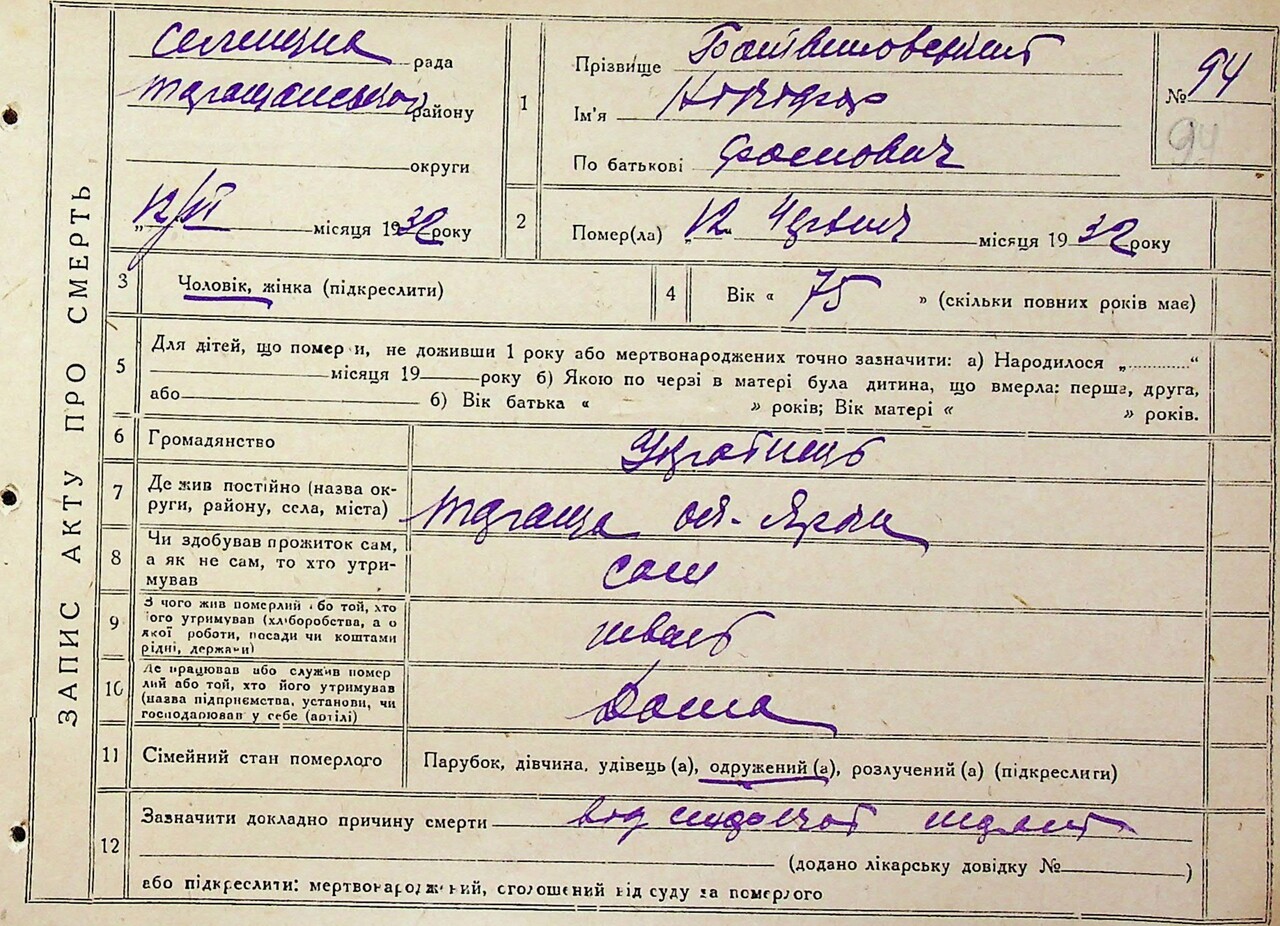 ЗАПИС АКТУ ПРО СМЕРТЬ
Селищна рада
Таращанського району
округи
„12/VI місяця 1932 року
1
Прізвище
Ім'я Никифор
По батькові Фомович
№ 94
94
2
Помер(ла) „12 Червня місяця 1932 року
3
Чоловік, жінка (підкреслити)
4
Вік « 75 » (скільки повних років має)
5
Для дітей, що помер и, не доживши 1 року або мертвонароджених точно зазначити: а) Народилося „............“
місяця 19 року б) Якою по черзі в матері була дитина, що вмерла: перша, друга,
або б) Вік батька « » років; Вік матері « » років.
6
Громадянство
Українець
7
Де жив постійно (назва ок-
руги, району, села, міста)
Тараща
8
Чи здобував прожиток сам,
а як не сам, то хто утри-
мував
сам
9
З чого жив померлий або той, хто
його утримував (хліборобства, а о
якої роботи, посади чи коштами
рідні, держави)
10
Де працював або служив помер
лий або той, хто його утримував
(назва підприємства, установи, чи
господарював у себе (артілі)
Дома
11
Сімейний стан померлого
Парубок, дівчина, удівець (а), одружений (а), розлучений (а) (підкреслити)
12
Зазначити докладно причину смерти від
(додано лікарську довідку № )
або підкреслити: мертвонароджений, оголошений від суду за померлого